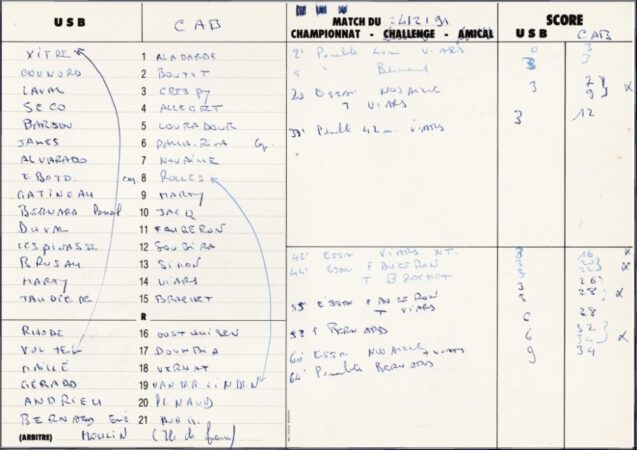 USB CAB
MATCH DU 24/2/91
CHAMPIONNAT - CHALLENGE - AMICAL
SCORE
USB CAB
XITRE 1 ALADARDE
COUNORD 2 BOUTOT
LAVAL 3 CRESPY
SECO 4 ALLEGRET
BARSON 5 LOURADOUR
JAMES 6 DALLA-RIVA Cap.
ALVARADO 7 NOUAILLE
E BOTO. cap. 8 ROLLES
GATINEAU 9 MARTY
BERNARD Pascal 10 JACQ
DUVAL 11 FAUGERON
LESPINASSE 12 SOUBIRA
BRUSAU 13 SIMON
MARTY 14 VIARS
TAUDIERE 15 BROCHET
R
RHODE 16 OUSTHUISEN
VULTEL 17 DOUMBIA
MAILLE 18 VERNAT
GERARD 19 VANDER LINDEN
ANDRIEU 20 PENAUD
BERNARD Eric 21
(ARBITRE) MOULIN (Ile de france)
2' Penalité 40m VIARS 0 3
5 " Bernard 3 3
20 ESSAI NOUAILLE 3 7
T VIARS 9 x
37' Penalité 42m VIARS 3 12
42' ESSAI VIARS NT. 3 16 x
44' ESSAI FAUGERON 3 20
T BROCHET 3 22 x
55' ESSAI FAUGERON 3 26
T VIARS 3 28 x
58' P BERNARD 6 28
60' ESSAI NOUAILLE 32
T VIARS 6 34 x
64' Penalité BERNARD 9 34